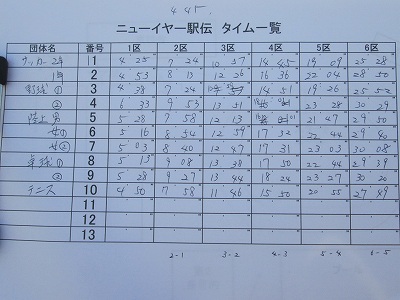 445.
ニューイヤー駅伝 タイム一覧
団体名 番号 1区 2区 3区 4区 5区 6区
サッカー2年 1 4 25 7 24 10 57 14 45 19 09 25 28
1年 2 4 53 8 13 12 26 16 36 22 04 28 50
3 4 38 7 24 14 51 19 26 25 52
② 4 6 33 9 53 13 51 23 28 30 29
陸上男 5 5 28 7 58 12 13 21 47 29 50
女① 6 5 16 8 34 12 59 17 32 22 44 29 40
女② 7 5 03 8 40 12 47 17 31 23 03 30 08
卓球① 8 5 13 9 08 13 38 17 50 22 44 29 39
② 9 5 28 9 27 13 44 18 24 23 27 30 20
テニス 10 4 50 7 58 11 46 15 50 20 55 27 49
11
12
13
2-1 3-2 4-3 5-4 6-5